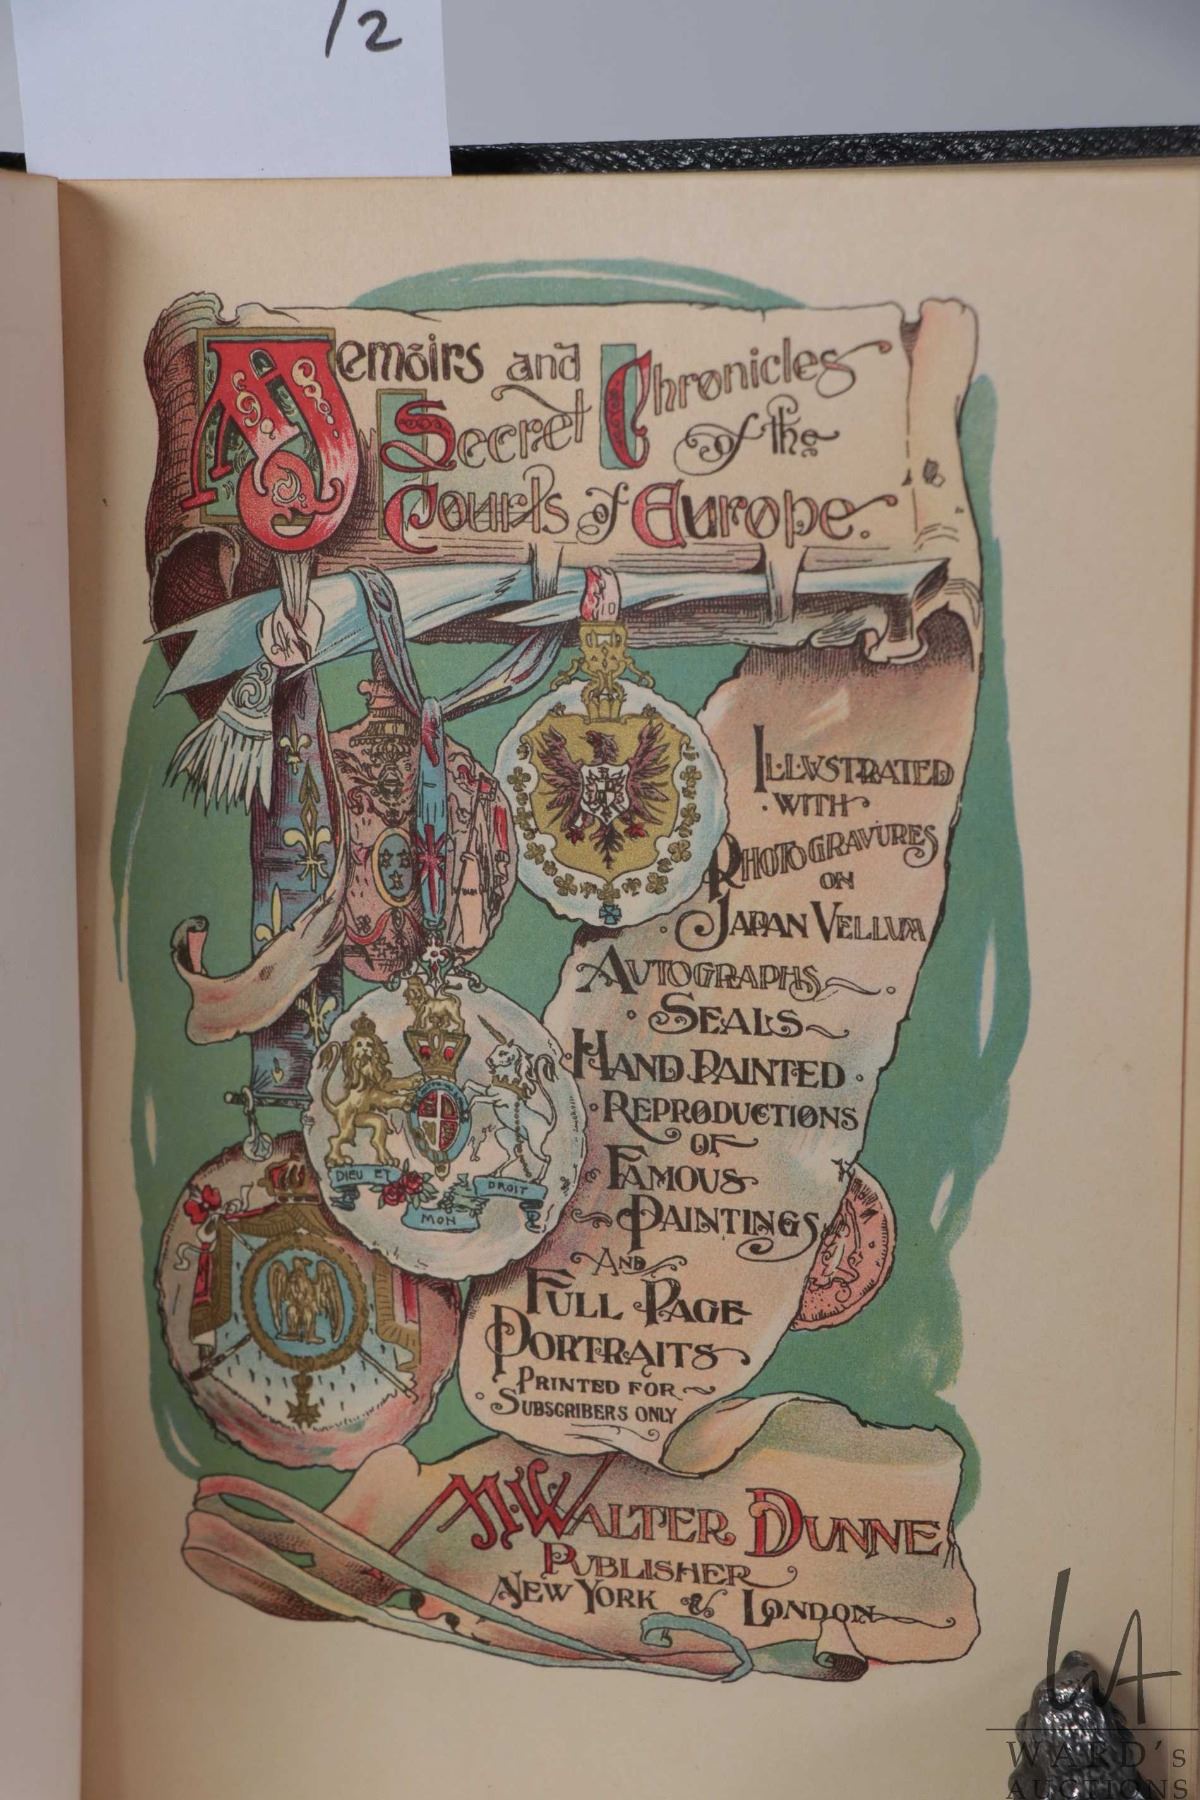 /2
Memoirs and
Secret Chronicles
of the
Courts of Europe.
ILLVSTRATED
· WITH ·
PHOTOGRAVURES
ON
JAPAN VELLUM
AUTOGRAPHS
SEALS
HAND PAINTED
REPRODUCTIONS
OF
FAMOUS
PAINTINGS
AND
FULL PAGE
PORTRAITS
PRINTED FOR
SUBSCRIBERS ONLY
DIEU ET
MON
DROIT
M. WALTER DUNNE
PUBLISHER
NEW YORK & LONDON
WA
WARD'S
AUCTIONS